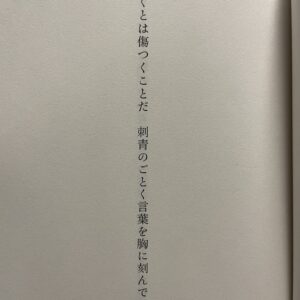 くとは傷つくことだ　刺青のごとく言葉を胸に刻んで